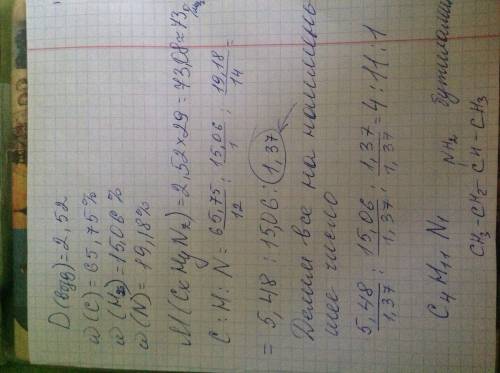 D(возд)=2,52
ω(C)=65,75%
ω(H)=15,06%
ω(N)=19,18%
M(CxHyNz)=2,52×29=73,08≈73
C:H:N=65,75/12 : 15,06/1 : 19,18/14 =
= 5,48 : 15,06 : 1,37
Делим все на наимень
шее число
5,48/1,37 : 15,06/1,37 : 1,37/1,37 = 4:11:1
C4H11N1
NH2
CH3-CH2-CH-CH3